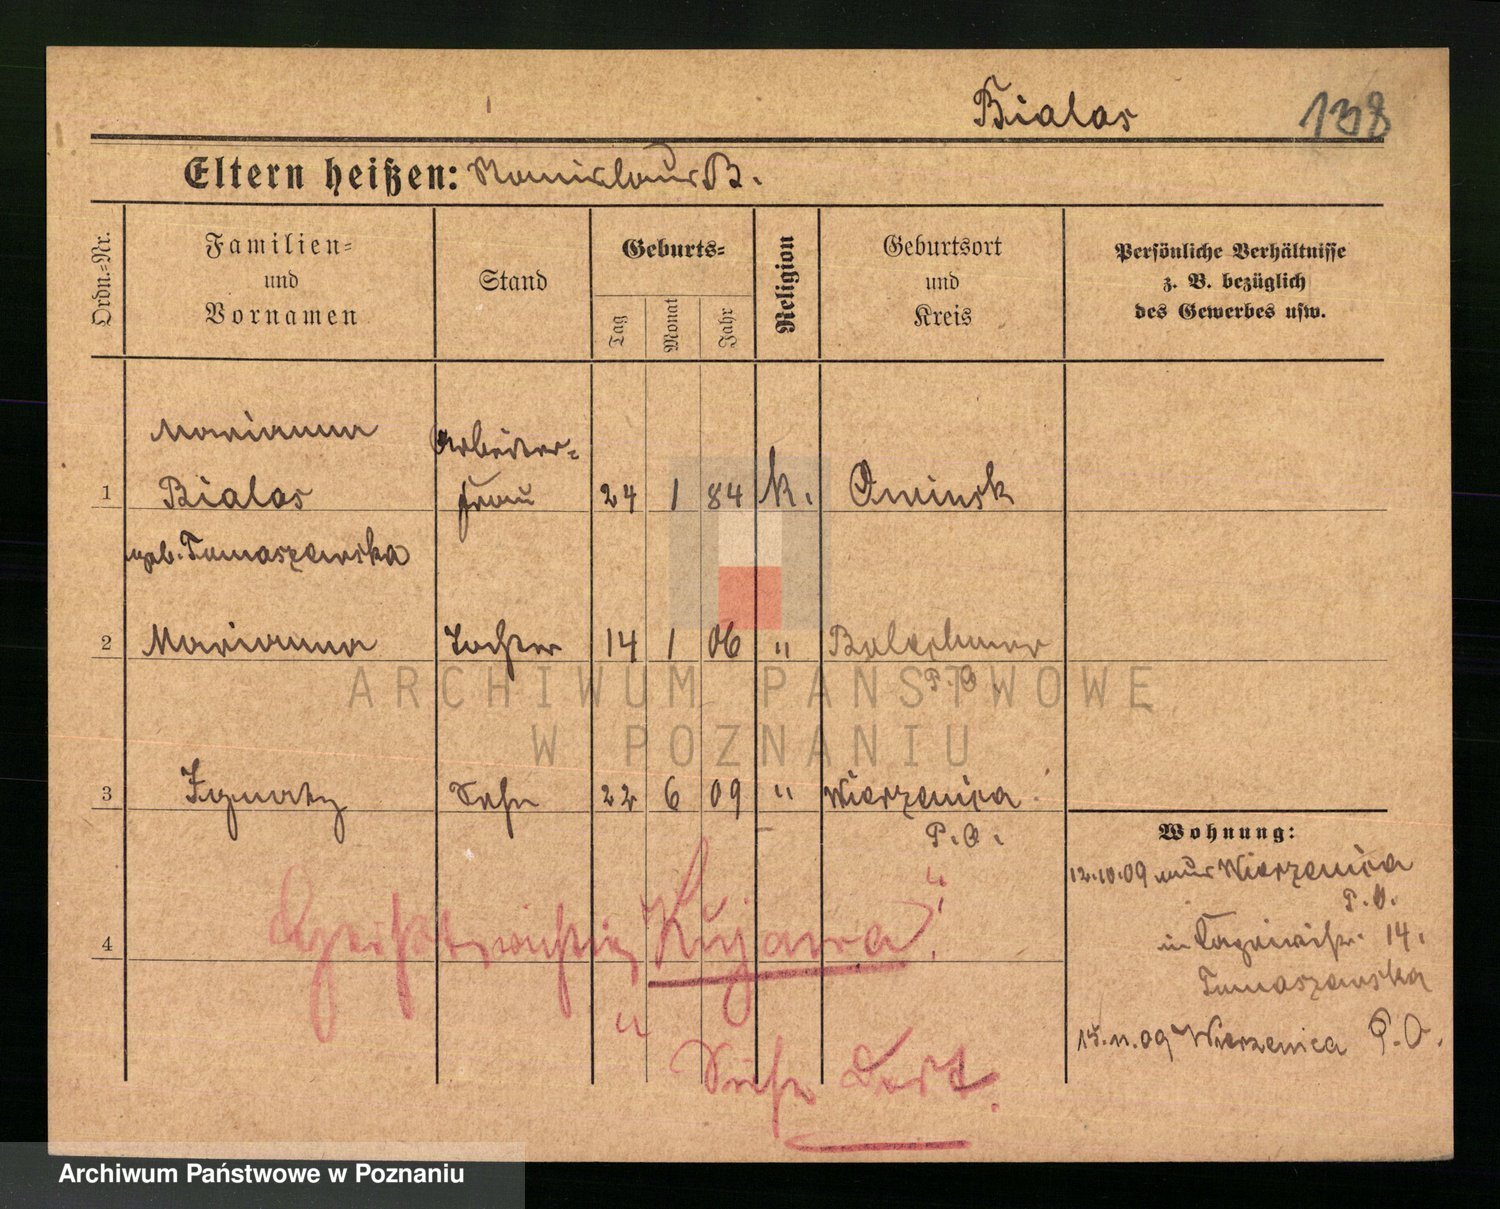 Bialas 138
Eltern heißen: Stanislaus B.
Ordn.-Nr.
Familien-
und
Vornamen
Stand
Geburts-
Tag
Monat
Jahr
Religion
Geburtsort
und
Kreis
Persönliche Verhältnisse
z. B. bezüglich
des Gewerbes usw.
Marianna Arbeiter-
1 Bialas frau 24 1 84 k. Owinsk
geb. Tomaszewska
2 Marianna Tochter 14 1 06 "
P. O.
3 Ignatz Sohn 22 6 09 " Wierzenica
P. O.
Wohnung:
12.10.09 aus Wierzenica
P. O.
4 Kujawa
in 14.
Tomaszewska
15.11.09 Wierzenica P. O.
Siehe dort.
ARCHIWUM PAŃSTWOWE
W POZNANIU
Archiwum Państwowe w Poznaniu